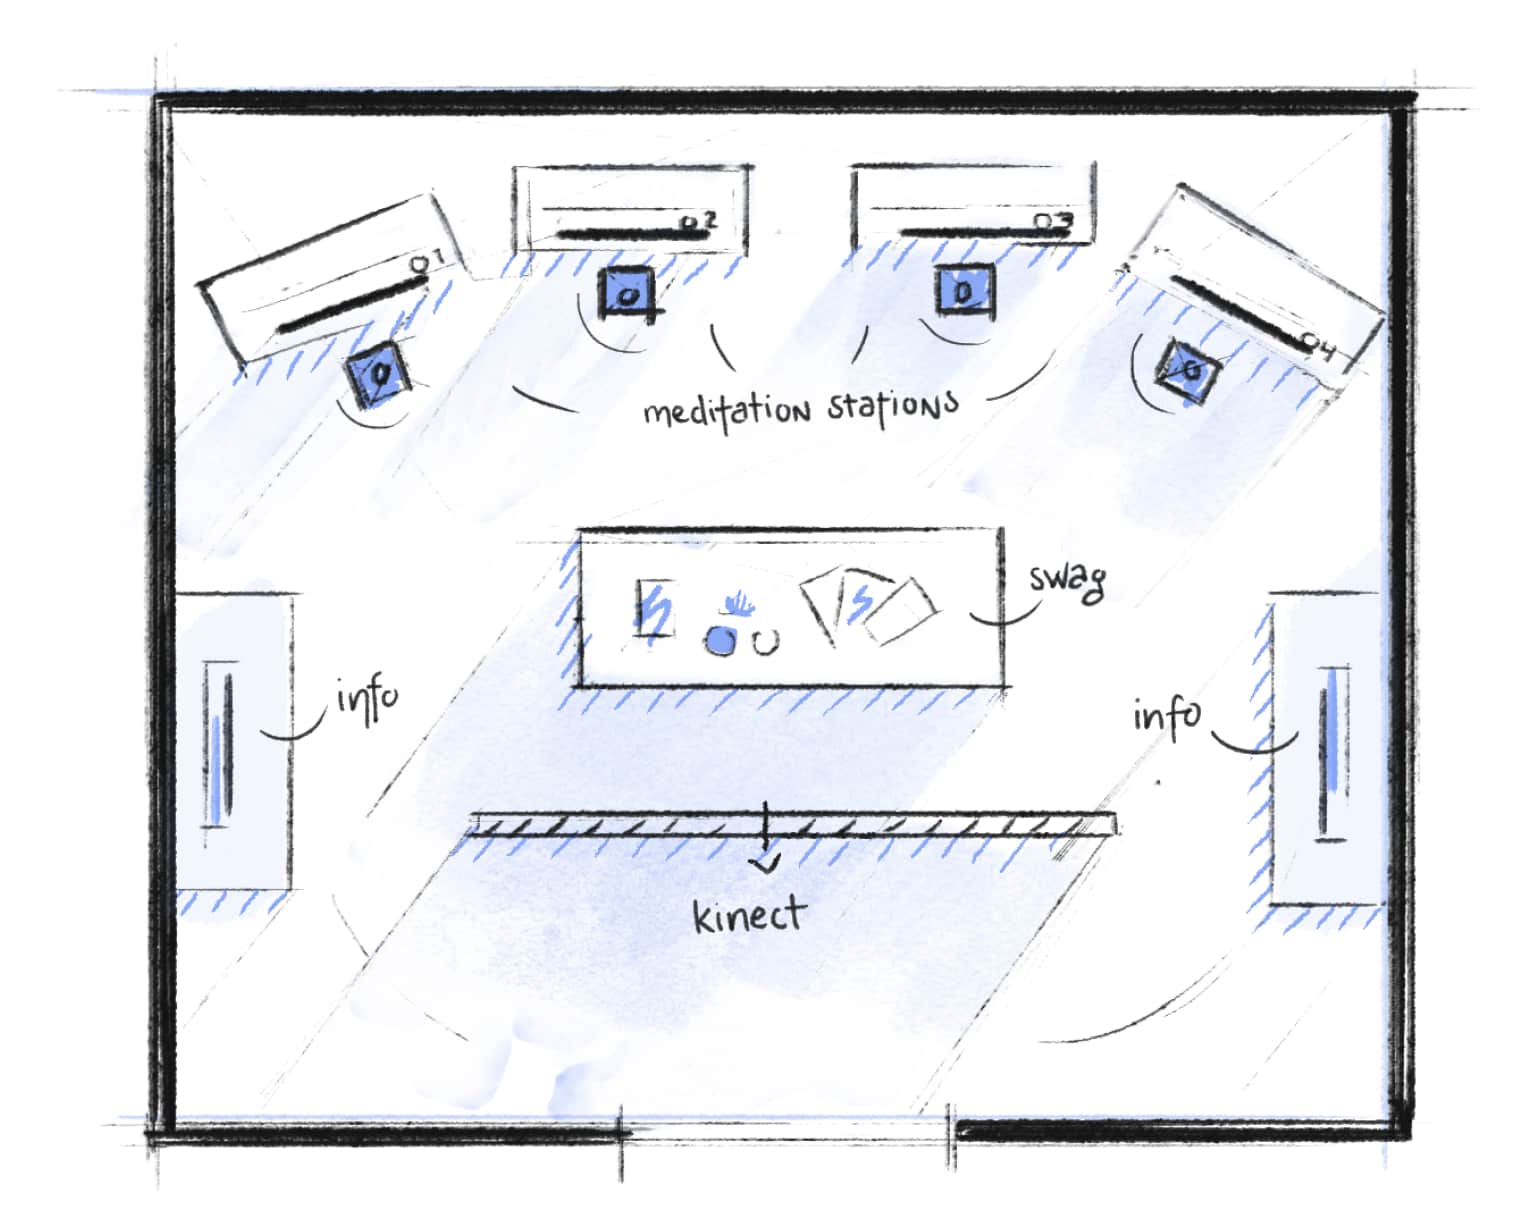 01
02
03
04
meditation stations
swag
info
info
kinect